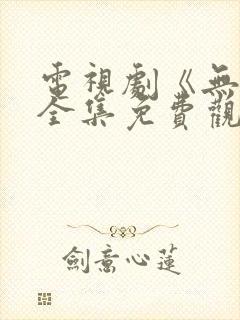 電視劇《無
全集免費觀
劍意心蓮